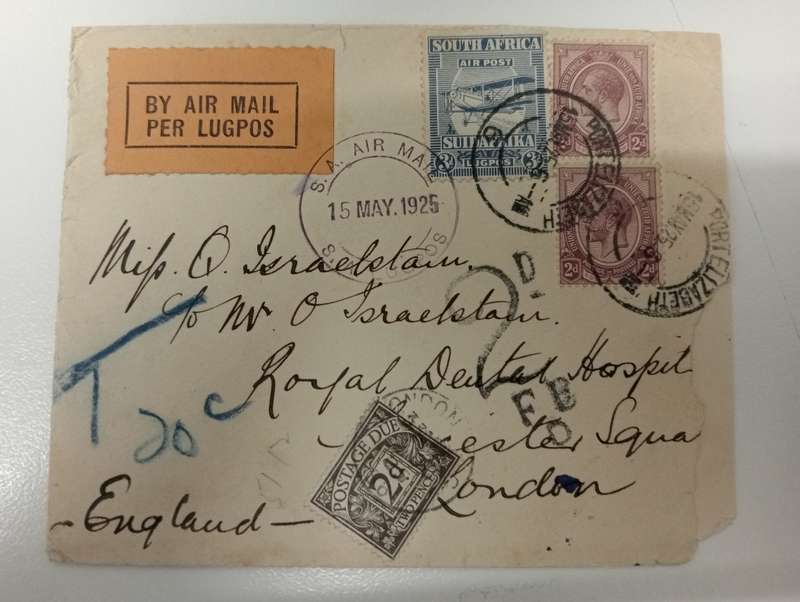 BY AIR MAIL
PER LUGPOS
SOUTH AFRICA
AIR POST
3d
SUIDAFRIKA
LUGPOS
2d 2d
2d 2d
S. A. AIR MAIL
15 MAY. 1925
PORT ELIZABETH
PORT ELIZABETH
Miss. O. Israelstam.
c/o Mr. O Israelstam.
Royal Dental Hospit
Squa
London
-England-
T 20c
2D
F B
LONDON
POSTAGE DUE
2d
TWO PENCE